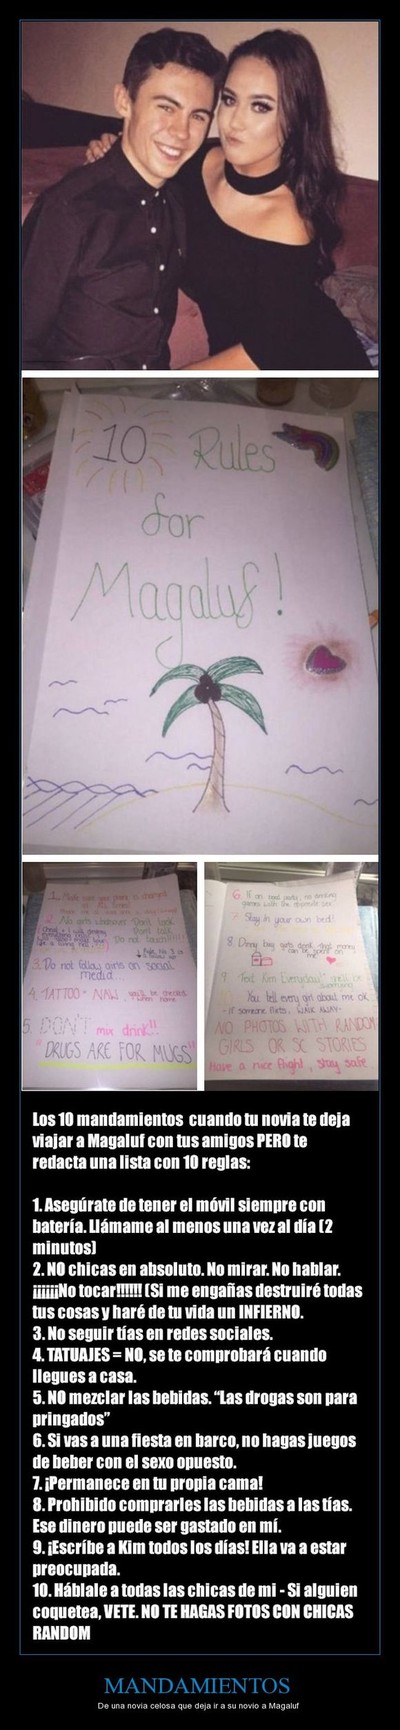 10 Rules
for
Magaluf!
2. No girls whatsoever. Don't look
Don't talk
Do not touch!!!!!
3. Do not follow girls on social
media...
4. TATTOO = NAW, you'll be checked
when home
5. DON'T mix drink!!
"DRUGS ARE FOR MUGS"
6. If on boat party, no drinking
games with the opposite sex
7. Stay in your own bed!
8. Dinny buy girls drink, that money
can be spent on
me
9. Text Kim Everyday!
You tell every girl about me ok
- If someone flirts, WALK AWAY-
NO PHOTOS WITH RANDOM
GIRLS OR SC STORIES
Have a nice flight, stay safe
Los 10 mandamientos cuando tu novia te deja
viajar a Magaluf con tus amigos PERO te
redacta una lista con 10 reglas:
1. Asegúrate de tener el móvil siempre con
batería. Llámame al menos una vez al día (2
minutos)
2. NO chicas en absoluto. No mirar. No hablar.
¡¡¡¡¡¡No tocar!!!!!! (Si me engañas destruiré todas
tus cosas y haré de tu vida un INFIERNO.
3. No seguir tías en redes sociales.
4. TATUAJES = NO, se te comprobará cuando
llegues a casa.
5. NO mezclar las bebidas. “Las drogas son para
pringados”
6. Si vas a una fiesta en barco, no hagas juegos
de beber con el sexo opuesto.
7. ¡Permanece en tu propia cama!
8. Prohibido comprarles las bebidas a las tías.
Ese dinero puede ser gastado en mí.
9. ¡Escríbe a Kim todos los días! Ella va a estar
preocupada.
10. Háblale a todas las chicas de mi - Si alguien
coquetea, VETE. NO TE HAGAS FOTOS CON CHICAS
RANDOM
MANDAMIENTOS
De una novia celosa que deja ir a su novio a Magaluf